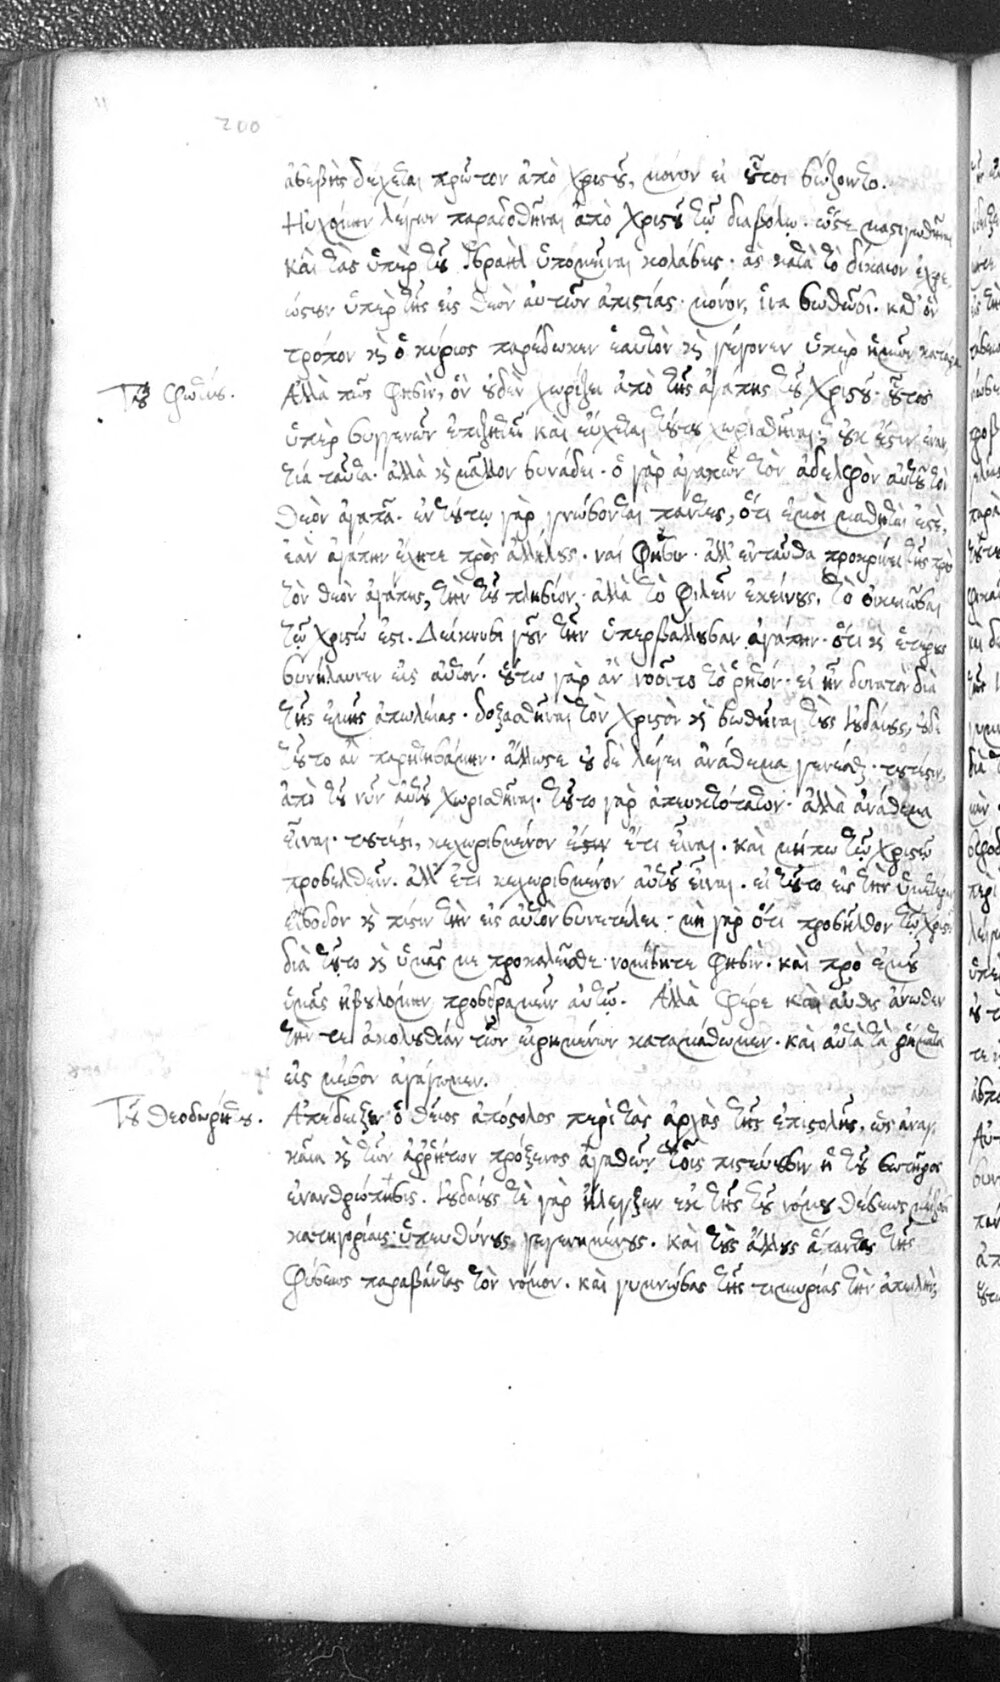 200
ἀσεβὴς δέχεται πρῶτον ἀπὸ χριστοῦ, μόνον εἰ οὗτοι σώζοιντο.
Ηὐχόμην λέγων παραδοθῆναι ἀπὸ χριστοῦ τῷ διαβόλῳ. ὥστε μαστιγωθῆναι
καὶ τὰς ὑπὲρ τοῦ Ἰσραὴλ ὑπομεῖναι κολάσεις. ἃς κατὰ τὸ δίκαιον
ὑπὲρ τῆς εἰς θεὸν αὐτῶν ἀπιστίας. μόνον, ἵνα σωθῶσι. καθ' ὃν
τρόπον καὶ ὁ κύριος παρέδωκεν ἑαυτὸν καὶ γέγονεν ὑπὲρ ἡμῶν κατάρα
Τοῦ Φωτίου.
Ἀλλὰ πῶς φησὶν, ὃν οὐδὲν χωρίζει ἀπὸ τῆς ἀγάπης τοῦ χριστοῦ. οὗτος
ὑπὲρ συγγενῶν ἐπιζητεῖ καὶ εὔχεται τούτου χωρισθῆναι; οὐκ ἔστιν ἐναν
τία ταῦτα. ἀλλὰ καὶ μᾶλλον συνάδει. ὁ γὰρ ἀγαπῶν τὸν ἀδελφὸν αὐτοῦ τὸν
θεὸν ἀγαπᾷ. ἐν τούτῳ γὰρ γνώσονται πάντες, ὅτι ἐμοὶ μαθηταὶ ἐστὲ,
ἐὰν ἀγάπην ἔχητε πρὸς ἀλλήλους. ναί φησιν. ἀλλ' ἐνταῦθα προκρίνει τῆς πρὸς
τὸν θεὸν ἀγάπης, τὴν τοῦ πλησίον. ἀλλὰ τὸ φιλεῖν ἐκείνους, τὸ οἰκειῶσαι
τῷ χριστῷ ἐστι. Δείκνυσι γοῦν τὴν ὑπερβάλλουσαν ἀγάπην. ὅτι καὶ ἑτέρους
συνήλαυνεν εἰς αὐτόν. οὕτω γὰρ ἂν νοοῖτο τὸ ῥητόν. εἰ ἦν δυνατὸν διὰ
τῆς ἐμῆς ἀπωλείας. δοξασθῆναι τὸν χριστὸν καὶ σωθῆναι τοὺς ἰουδαίους, οὐδὲ
τοῦτο ἂν παρῃτησάμην. ἄλλωστε οὐδὲ λέγει ἀνάθεμα γενέσθαι. τουτέστιν,
ἀπὸ τοῦ νῦν αὐτοῦ χωρισθῆναι. τοῦτο γὰρ ἀπευκτότατον. ἀλλὰ ἀνάθεμα
εἶναι. τουτέστι, κεχωρισμένον ἔτι εἶναι. καὶ μήπω τῷ χριστῷ
προσελθεῖν. ἀλλ' ἔτι κεχωρισμένον αὐτοῦ εἶναι. εἰ τοῦτο εἰς τὴν ὑμετέραν
εἴσοδον καὶ πίστιν τὴν εἰς αὐτὸν συνετέλει. μὴ γὰρ ὅτι προσῆλθον τῷ χριστῷ
διὰ τοῦτο καὶ ὑμᾶς με προκαλεῖσθαι νομίσητε φησὶν. καὶ πρὸ ἐμοῦ
ὑμᾶς ἠβουλόμην προσδραμεῖν αὐτῷ. Ἀλλὰ φέρε καὶ αὖθις ἄνωθεν
τήν τε ἀκολουθίαν τῶν εἰρημένων καταμάθωμεν. καὶ αὐτὰ τὰ ῥήματα
εἰς μέσον ἀγάγωμεν.
Τοῦ Θεοδωρήτου.
Ἀπέδειξεν ὁ θεῖος ἀπόστολος περὶ τὰς ἀρχὰς τῆς ἐπιστολῆς, ὡς ἀναγ
καία καὶ τῶν ἀῤῥήτων πρόξενος ἀγαθῶν τοῖς πιστεύουσιν ἡ τοῦ σωτῆρος
ἐνανθρώπησις. ἰουδαίους τε γὰρ ἤλεγξεν ἐκ τῆς τοῦ νόμου θέσεως μείζοσι
κατηγορίαις ὑπευθύνους γεγενημένους. καὶ τοὺς ἄλλους ἅπαντας τῆς
φύσεως παραβάντας τὸν νόμον. καὶ γυμνώσας τῆς τιμωρίας τὴν ἀπειλὴν